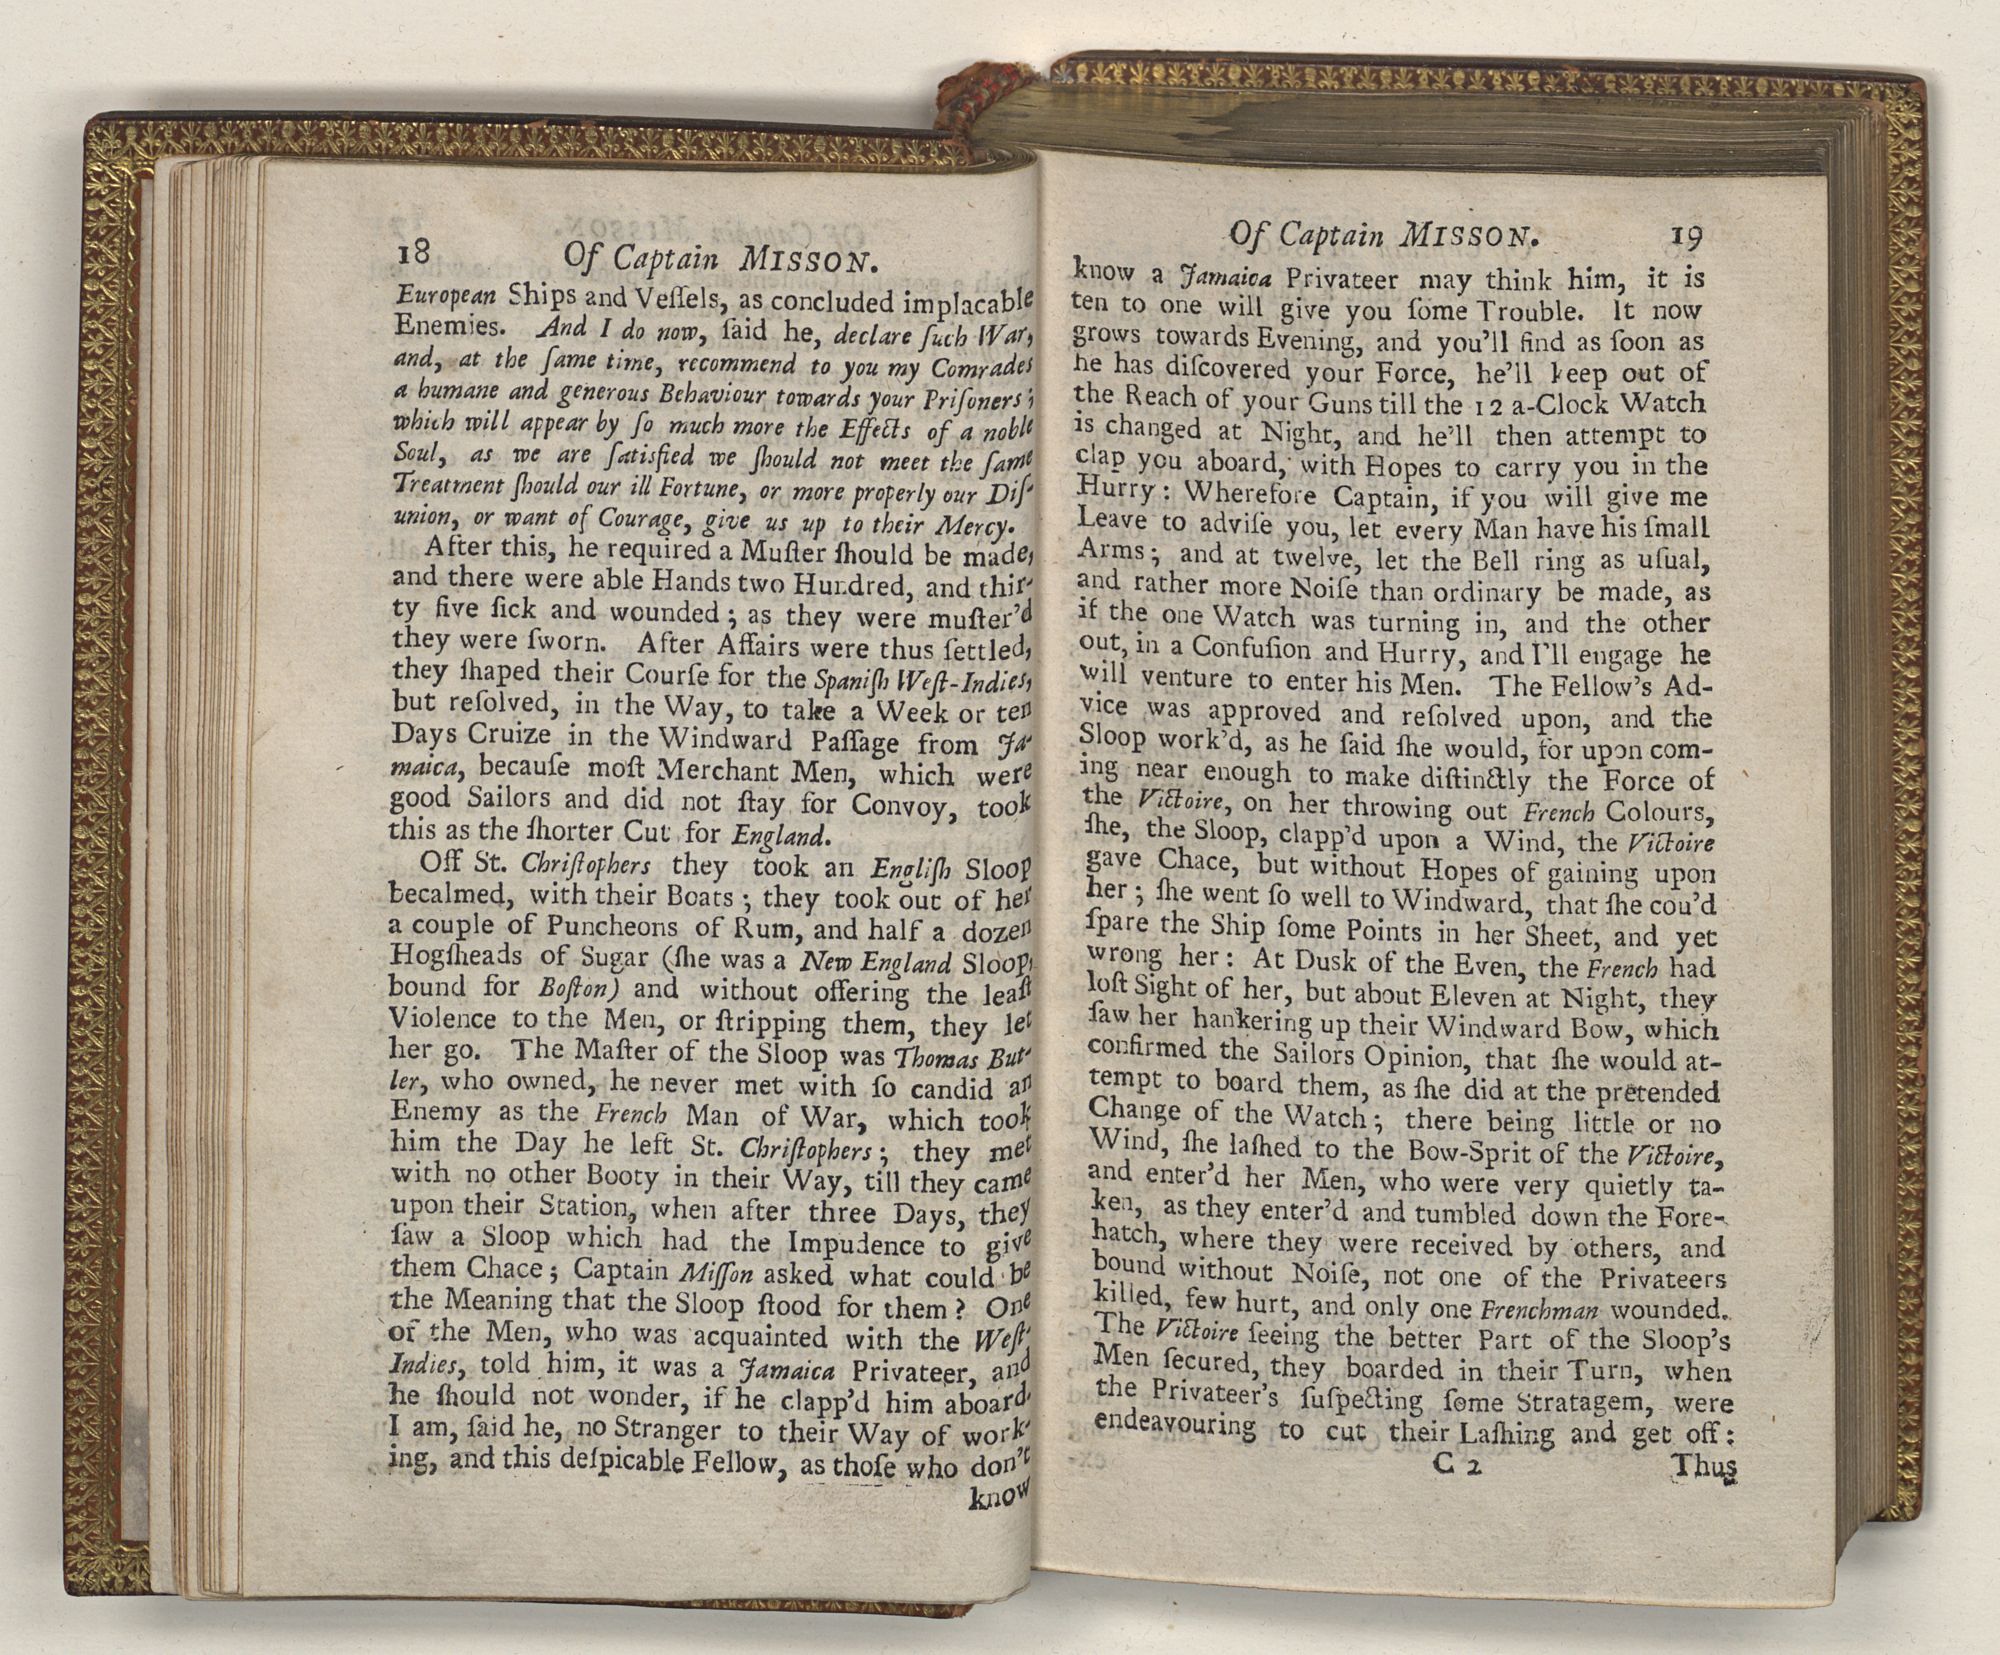 18 Of Captain MISSON.
European Ships and Veſſels, as concluded implacable
Enemies. And I do now, ſaid he, declare ſuch War,
and, at the ſame time, recommend to you my Comrades
a humane and generous Behaviour towards your Priſoners;
which will appear by ſo much more the Effects of a noble
Soul, as we are ſatisfied we ſhould not meet the ſame
Treatment ſhould our ill Fortune, or more properly our Diſ-
union, or want of Courage, give us up to their Mercy.
After this, he required a Muſter ſhould be made,
and there were able Hands two Hundred, and thir-
ty five ſick and wounded; as they were muſter'd
they were ſworn. After Affairs were thus ſettled,
they ſhaped their Courſe for the Spaniſh Weſt-Indies,
but reſolved, in the Way, to take a Week or ten
Days Cruize in the Windward Paſſage from Ja-
maica, becauſe moſt Merchant Men, which were
good Sailors and did not ſtay for Convoy, took
this as the ſhorter Cut for England.
Off St. Chriſtophers they took an Engliſh Sloop
becalmed, with their Boats; they took out of her
a couple of Puncheons of Rum, and half a dozen
Hogſheads of Sugar (ſhe was a New England Sloop,
bound for Boſton) and without offering the leaſt
Violence to the Men, or ſtripping them, they let
her go. The Maſter of the Sloop was Thomas But-
ler, who owned, he never met with ſo candid an
Enemy as the French Man of War, which took
him the Day he left St. Chriſtophers; they met
with no other Booty in their Way, till they came
upon their Station, when after three Days, they
ſaw a Sloop which had the Impudence to give
them Chace; Captain Miſſon asked what could be
the Meaning that the Sloop ſtood for them? One
of the Men, who was acquainted with the Weſt-
Indies, told him, it was a Jamaica Privateer, and
he ſhould not wonder, if he clapp'd him aboard.
I am, ſaid he, no Stranger to their Way of work-
ing, and this deſpicable Fellow, as thoſe who don't
know
Of Captain MISSON. 19
know a Jamaica Privateer may think him, it is
ten to one will give you ſome Trouble. It now
grows towards Evening, and you'll find as ſoon as
he has diſcovered your Force, he'll keep out of
the Reach of your Guns till the 12 a-Clock Watch
is changed at Night, and he'll then attempt to
clap you aboard, with Hopes to carry you in the
Hurry: Wherefore Captain, if you will give me
Leave to adviſe you, let every Man have his ſmall
Arms; and at twelve, let the Bell ring as uſual,
and rather more Noiſe than ordinary be made, as
if the one Watch was turning in, and the other
out, in a Confuſion and Hurry, and I'll engage he
will venture to enter his Men. The Fellow's Ad-
vice was approved and reſolved upon, and the
Sloop work'd, as he ſaid ſhe would, for upon com-
ing near enough to make diſtinctly the Force of
the Victoire, on her throwing out French Colours,
ſhe, the Sloop, clapp'd upon a Wind, the Victoire
gave Chace, but without Hopes of gaining upon
her; ſhe went ſo well to Windward, that ſhe cou'd
ſpare the Ship ſome Points in her Sheet, and yet
wrong her: At Dusk of the Even, the French had
loſt Sight of her, but about Eleven at Night, they
ſaw her hankering up their Windward Bow, which
confirmed the Sailors Opinion, that ſhe would at-
tempt to board them, as ſhe did at the pretended
Change of the Watch; there being little or no
Wind, ſhe laſhed to the Bow-Sprit of the Victoire,
and enter'd her Men, who were very quietly ta-
ken, as they enter'd and tumbled down the Fore-
hatch, where they were received by others, and
bound without Noiſe, not one of the Privateers
killed, few hurt, and only one Frenchman wounded.
The Victoire ſeeing the better Part of the Sloop's
Men ſecured, they boarded in their Turn, when
the Privateer's ſuſpecting ſome Stratagem, were
endeavouring to cut their Laſhing and get off:
C 2 Thus